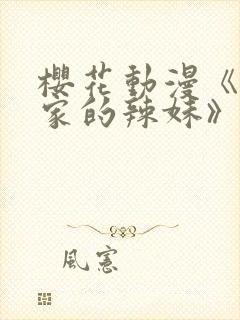 櫻花動漫《
家的辣妹》
風憲